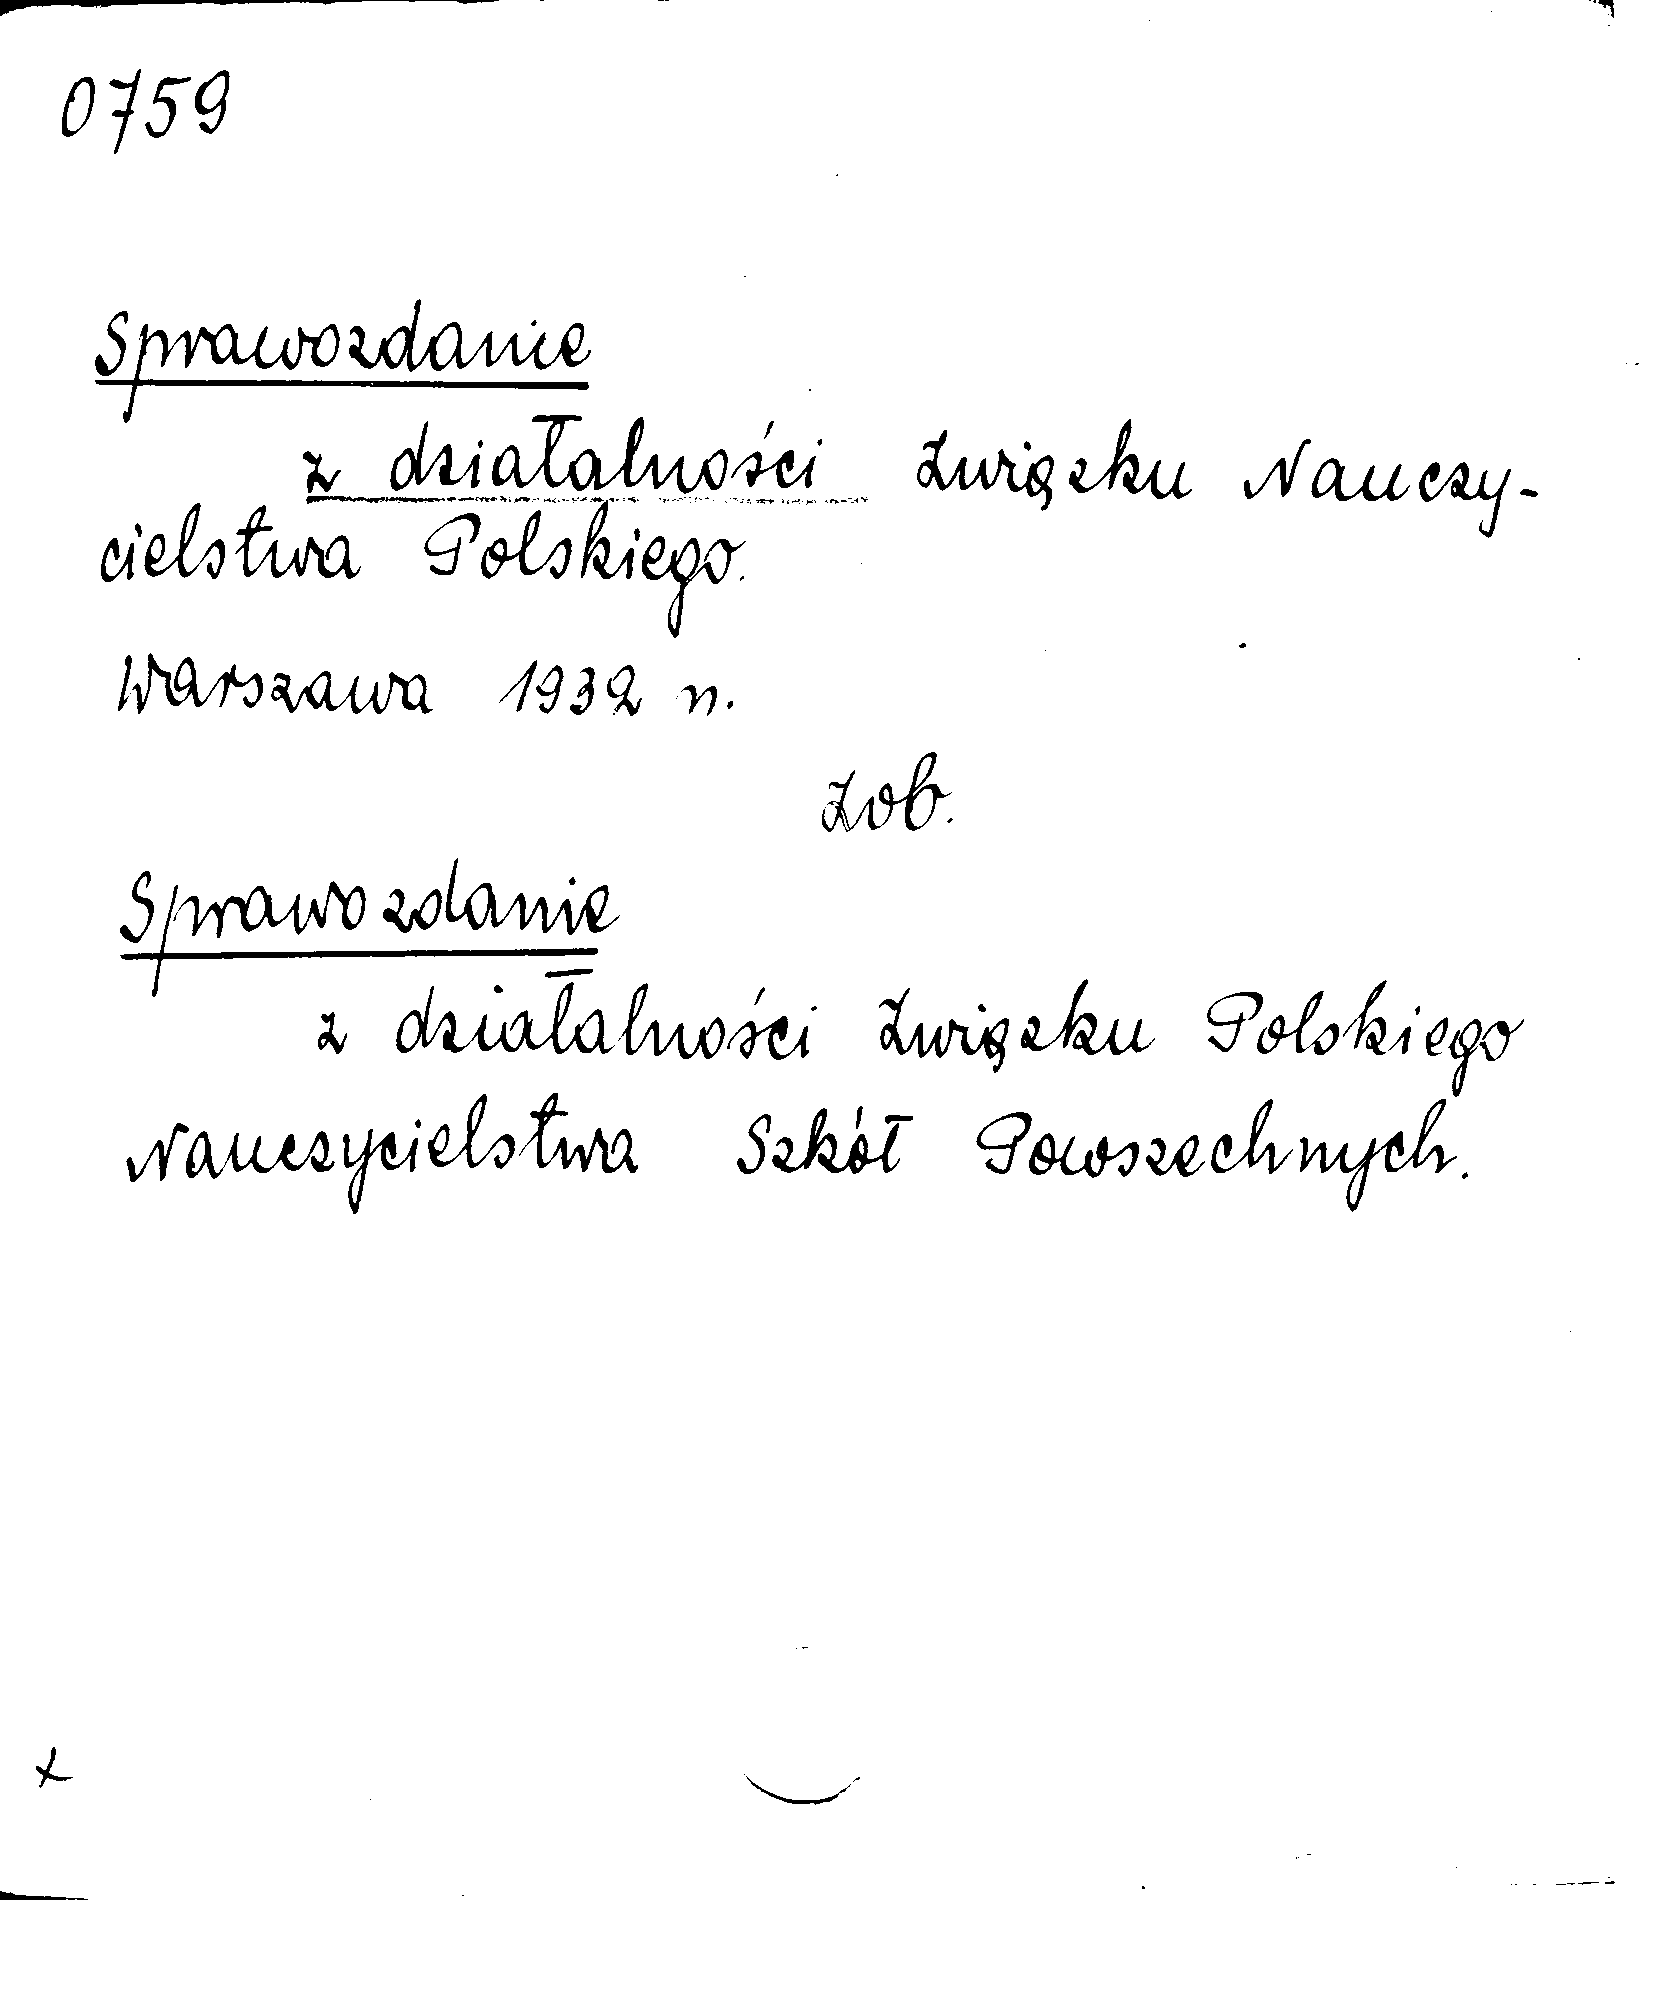 0759
Sprawozdanie
z działalności Związku Nauczy-
cielstwa Polskiego.
Warszawa 1932 n.
Zob.
Sprawozdanie
z działalności Związku Polskiego
Nauczycielstwa Szkół Powszechnych.
x